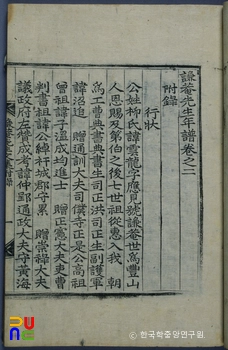 謙菴先生年譜卷之二
附錄
行狀
公姓柳氏諱雲龍字應見號謙菴世爲豐山
人恩賜及第伯之後七世祖從惠入我 朝
爲工曹典書典書生司正洪司正生副護軍
諱沼追 贈通訓大夫司僕寺正是公高祖
曾祖諱子溫成均進士 贈正憲大夫吏曹
判書祖諱公綽杆城郡守累 贈崇祿大夫
議政府左 成考諱仲郢通政大夫守黃海
PUNC
ⓒ 한국학중앙연구원